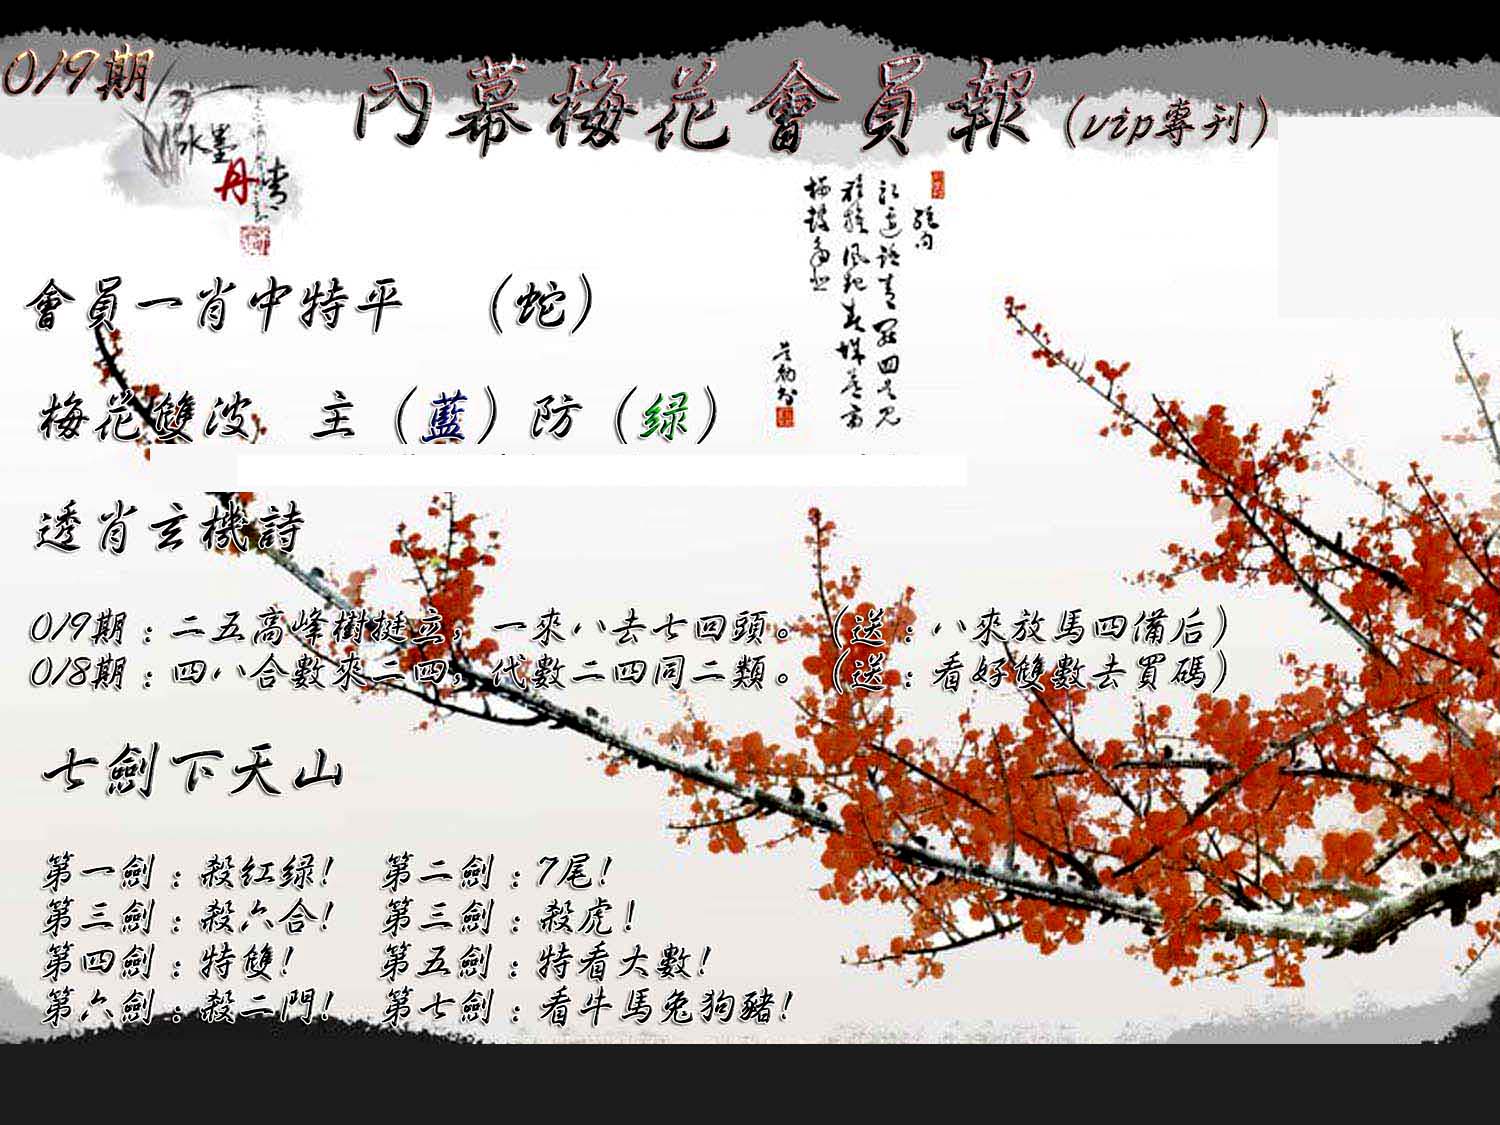 019期
內幕梅花會員報(vip專刊)
水墨
丹情
絕句
會員一肖中特平 (蛇)
梅花雙波 主(藍)防(绿)
透肖玄機詩
019期:二五高峰樹挺立,一來八去七回頭。(送:八來放馬四備后)
018期:四八合數來二四,代數二四同二類。(送:看好雙數去買碼)
七劍下天山
第一劍:殺紅绿! 第二劍:7尾!
第三劍:殺六合! 第三劍:殺虎!
第四劍:特雙! 第五劍:特看大數!
第六劍:殺二門! 第七劍:看牛馬兔狗豬!